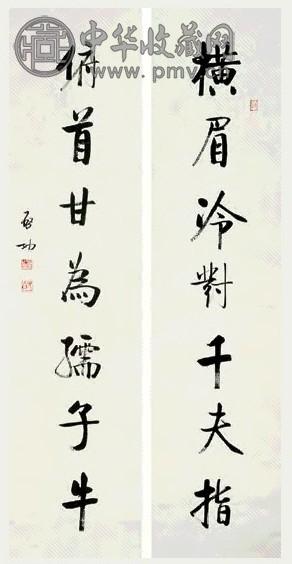 中华收藏网
www.pmv
橫眉冷對千夫指
俯首甘為孺子牛
啟功